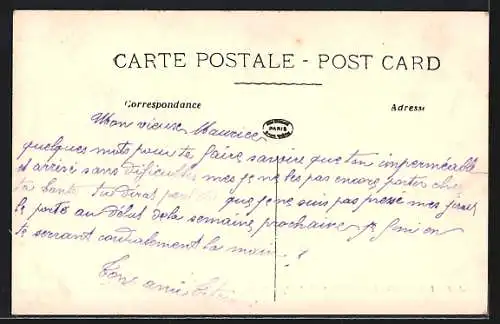 CARTE POSTALE - POST CARD
Correspondance
Adresse
PARIS
Mon vieux Maurice
quelques mots pour te faire savoire que ton imperméable
et arrivé sans dificultés mes je ne les pas encore porter chez
ta tante tu dirat que je ne suis pas presse mes jirait
le porté au début de la semaine prochaine je fini en
te serrant cordialement la main !
Ton ami